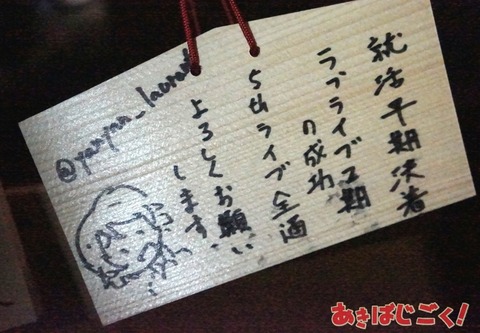 就活早期決着
ラブライブ2期
の成功
5thライブ全通
よろしくお願い
します。
あきばじごく!